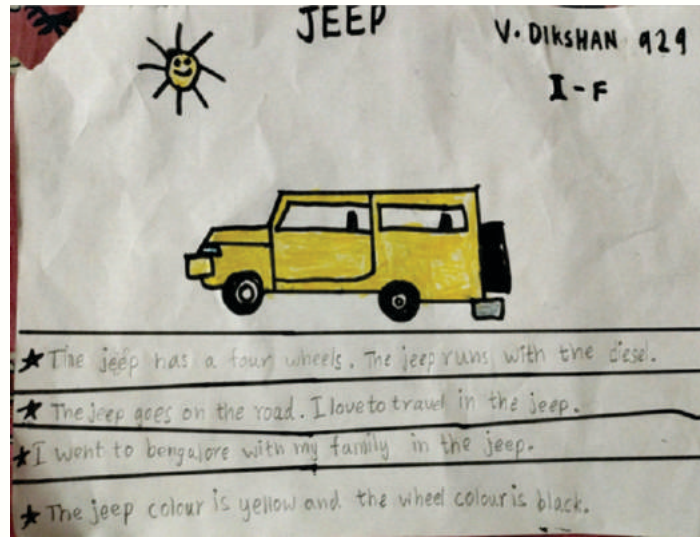 JEEP
V. DIKSHAN 929
I-F
★ The jeep has a four wheels. The jeep runs with the diesel.
★ The jeep goes on the road. I love to travel in the jeep.
★ I went to bengalore with my family in the jeep.
★ The jeep colour is yellow and the wheel colour is black.